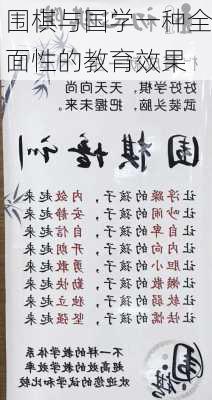 围棋与国学一种全
面性的教育效果
天天向尚
武装头脑，把握未来。
围棋
让浮躁的孩子，内敛起来
让吵闹的孩子，安静起来
让自卑的孩子，自信起来
让内向的孩子，开朗起来
让胆小的孩子，勇敢起来
让懒散的孩子，勤快起来
让软弱的孩子，独立起来
让怯懦的孩子，坚强起来
不一样的教学体系
高效的教学效率
欢迎您的试学和比较
围棋